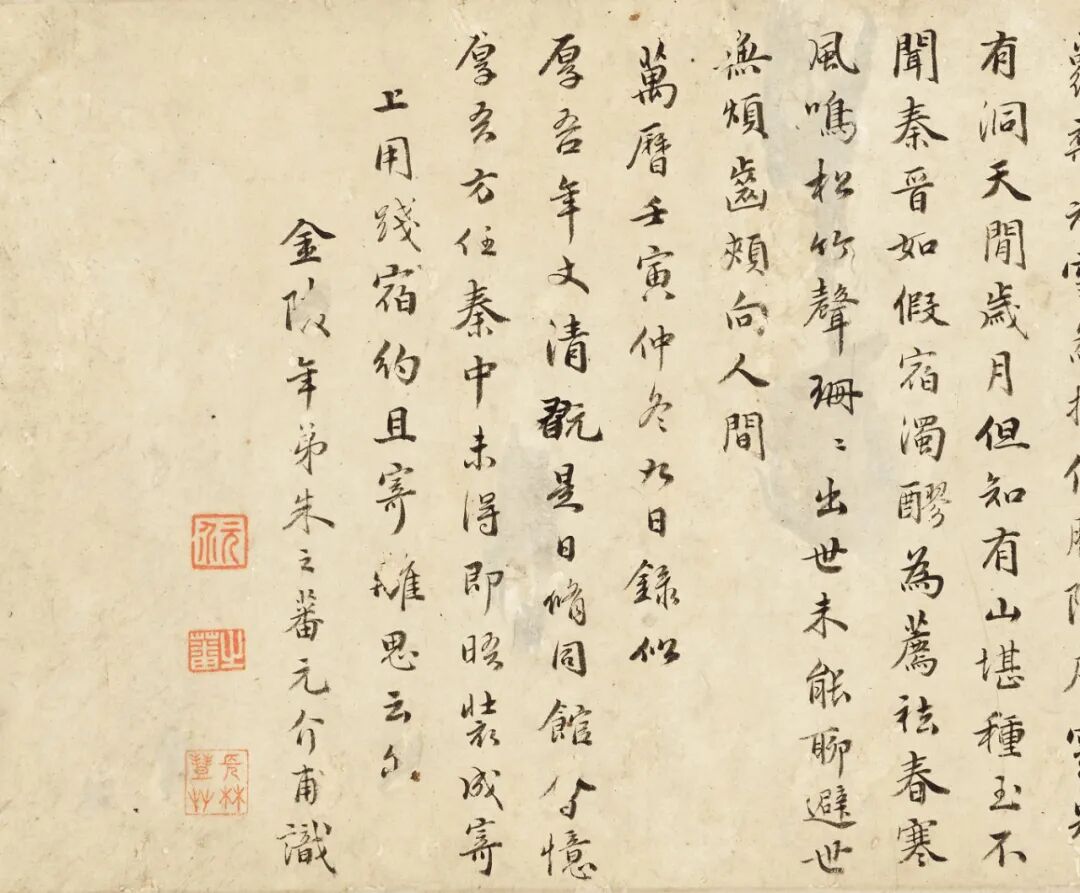 有洞天閒歲月但知有山堪種玉不
聞秦晉如假宿濁醪為薦祛春寒
風鳴松竹聲珊〻出世未能聊避世
無煩齒頰向人間
萬曆壬寅仲冬九日錄似
厚吾年丈清翫是日脩同館公憶
厚吾方任秦中未得即晤裝成寄
上用踐宿約且寄離思云尔
金陵年弟朱之蕃元介甫識
元介
之蕃